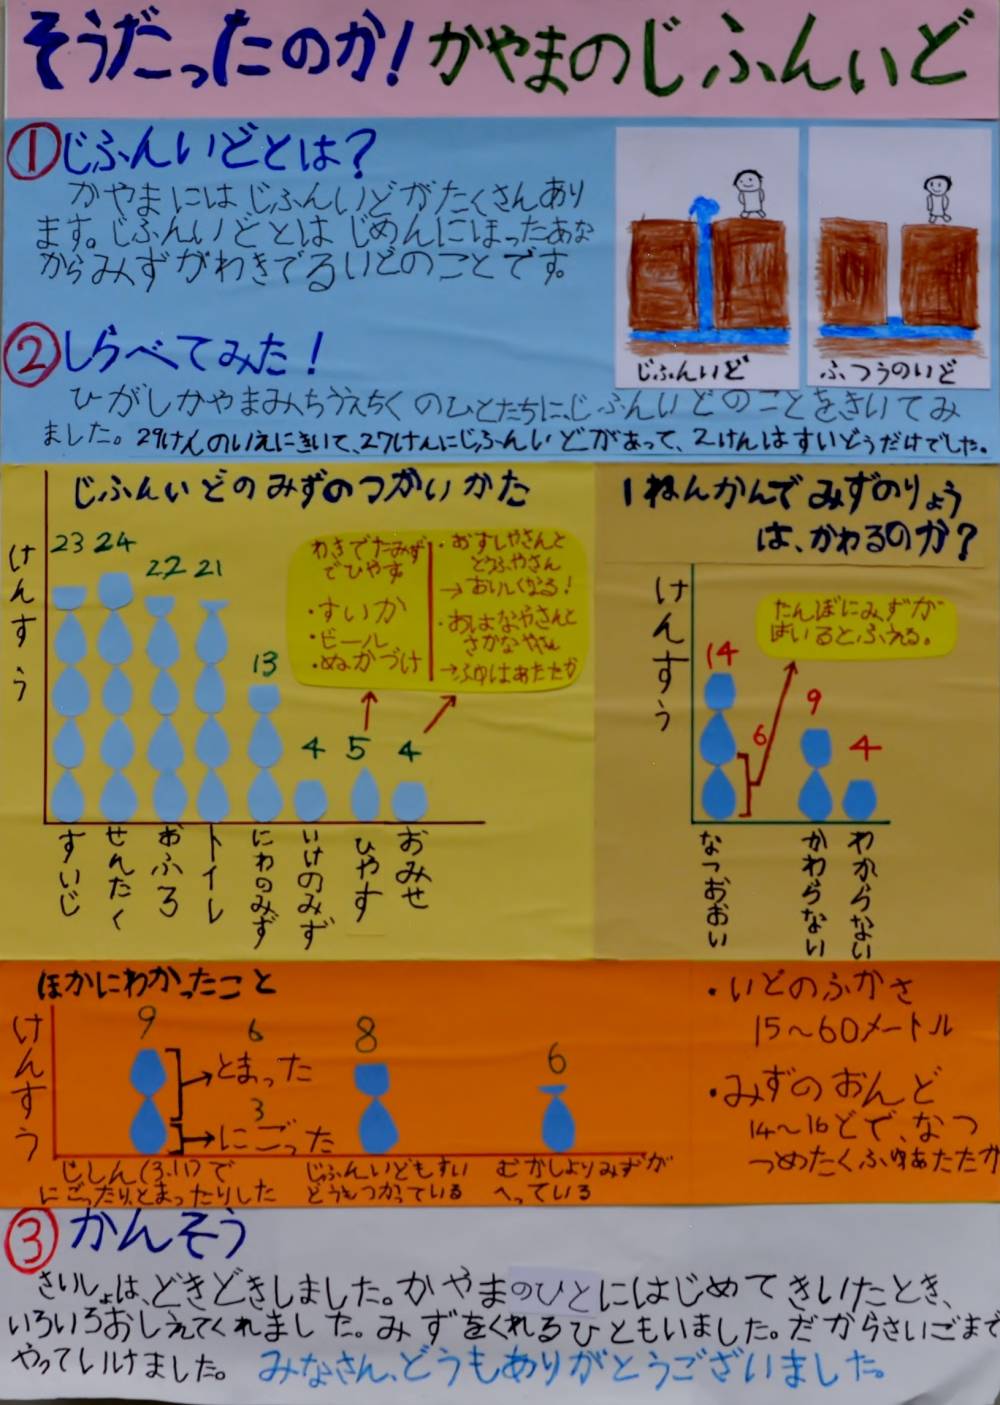 そうだったのか！かやまのじふんいど
①じふんいどとは？
かやまにはじふんいどがたくさんあり
ます。じふんいどとはじめんにほったあな
からみずがわきでるいどのことです。
じふんいど
ふつうのいど
②しらべてみた！
ひがしかやまみちうえちくのひとたちに、じふんいどのことをきいてみ
ました。29けんのいえにきいて、27けんにじふんいどがあって、2けんはすいどうだけでした。
じふんいどのみずのつかいかた
けんすう
23 24 22 21 13 4 5 4
わきでたみず
でひやす
・すいか
・ビール
・ぬかづけ
・おすしやさんと
とうふやさん
→おいしくなる！
・おはなやさんと
さかなやさん
→ふゆはあたたか
すいじ
せんたく
おふろ
トイレ
にわのみず
いけのみず
ひやす
おみせ
1ねんかんでみずのりょう
は、かわるのか？
けんすう
たんぼにみずが
はいるとふえる。
14 6 9 4
なつおおい
かわらない
わからない
ほかにわかったこと
けんすう
9 6 8 6
→とまった
3
→にごった
じしん(3.11)で
にごったり、とまったりした
じふんいどもすい
どうもつかっている
むかしよりみずが
へっている
・いどのふかさ
15〜60メートル
・みずのおんど
14〜16どで、なつ
つめたくふゆあたたか
③かんそう
さいしょは、どきどきしました。かやまのひとにはじめてきいたとき、
いろいろおしえてくれました。みずをくれるひともいました。だからさいごまで
やっていけました。みなさん、どうもありがとうございました。